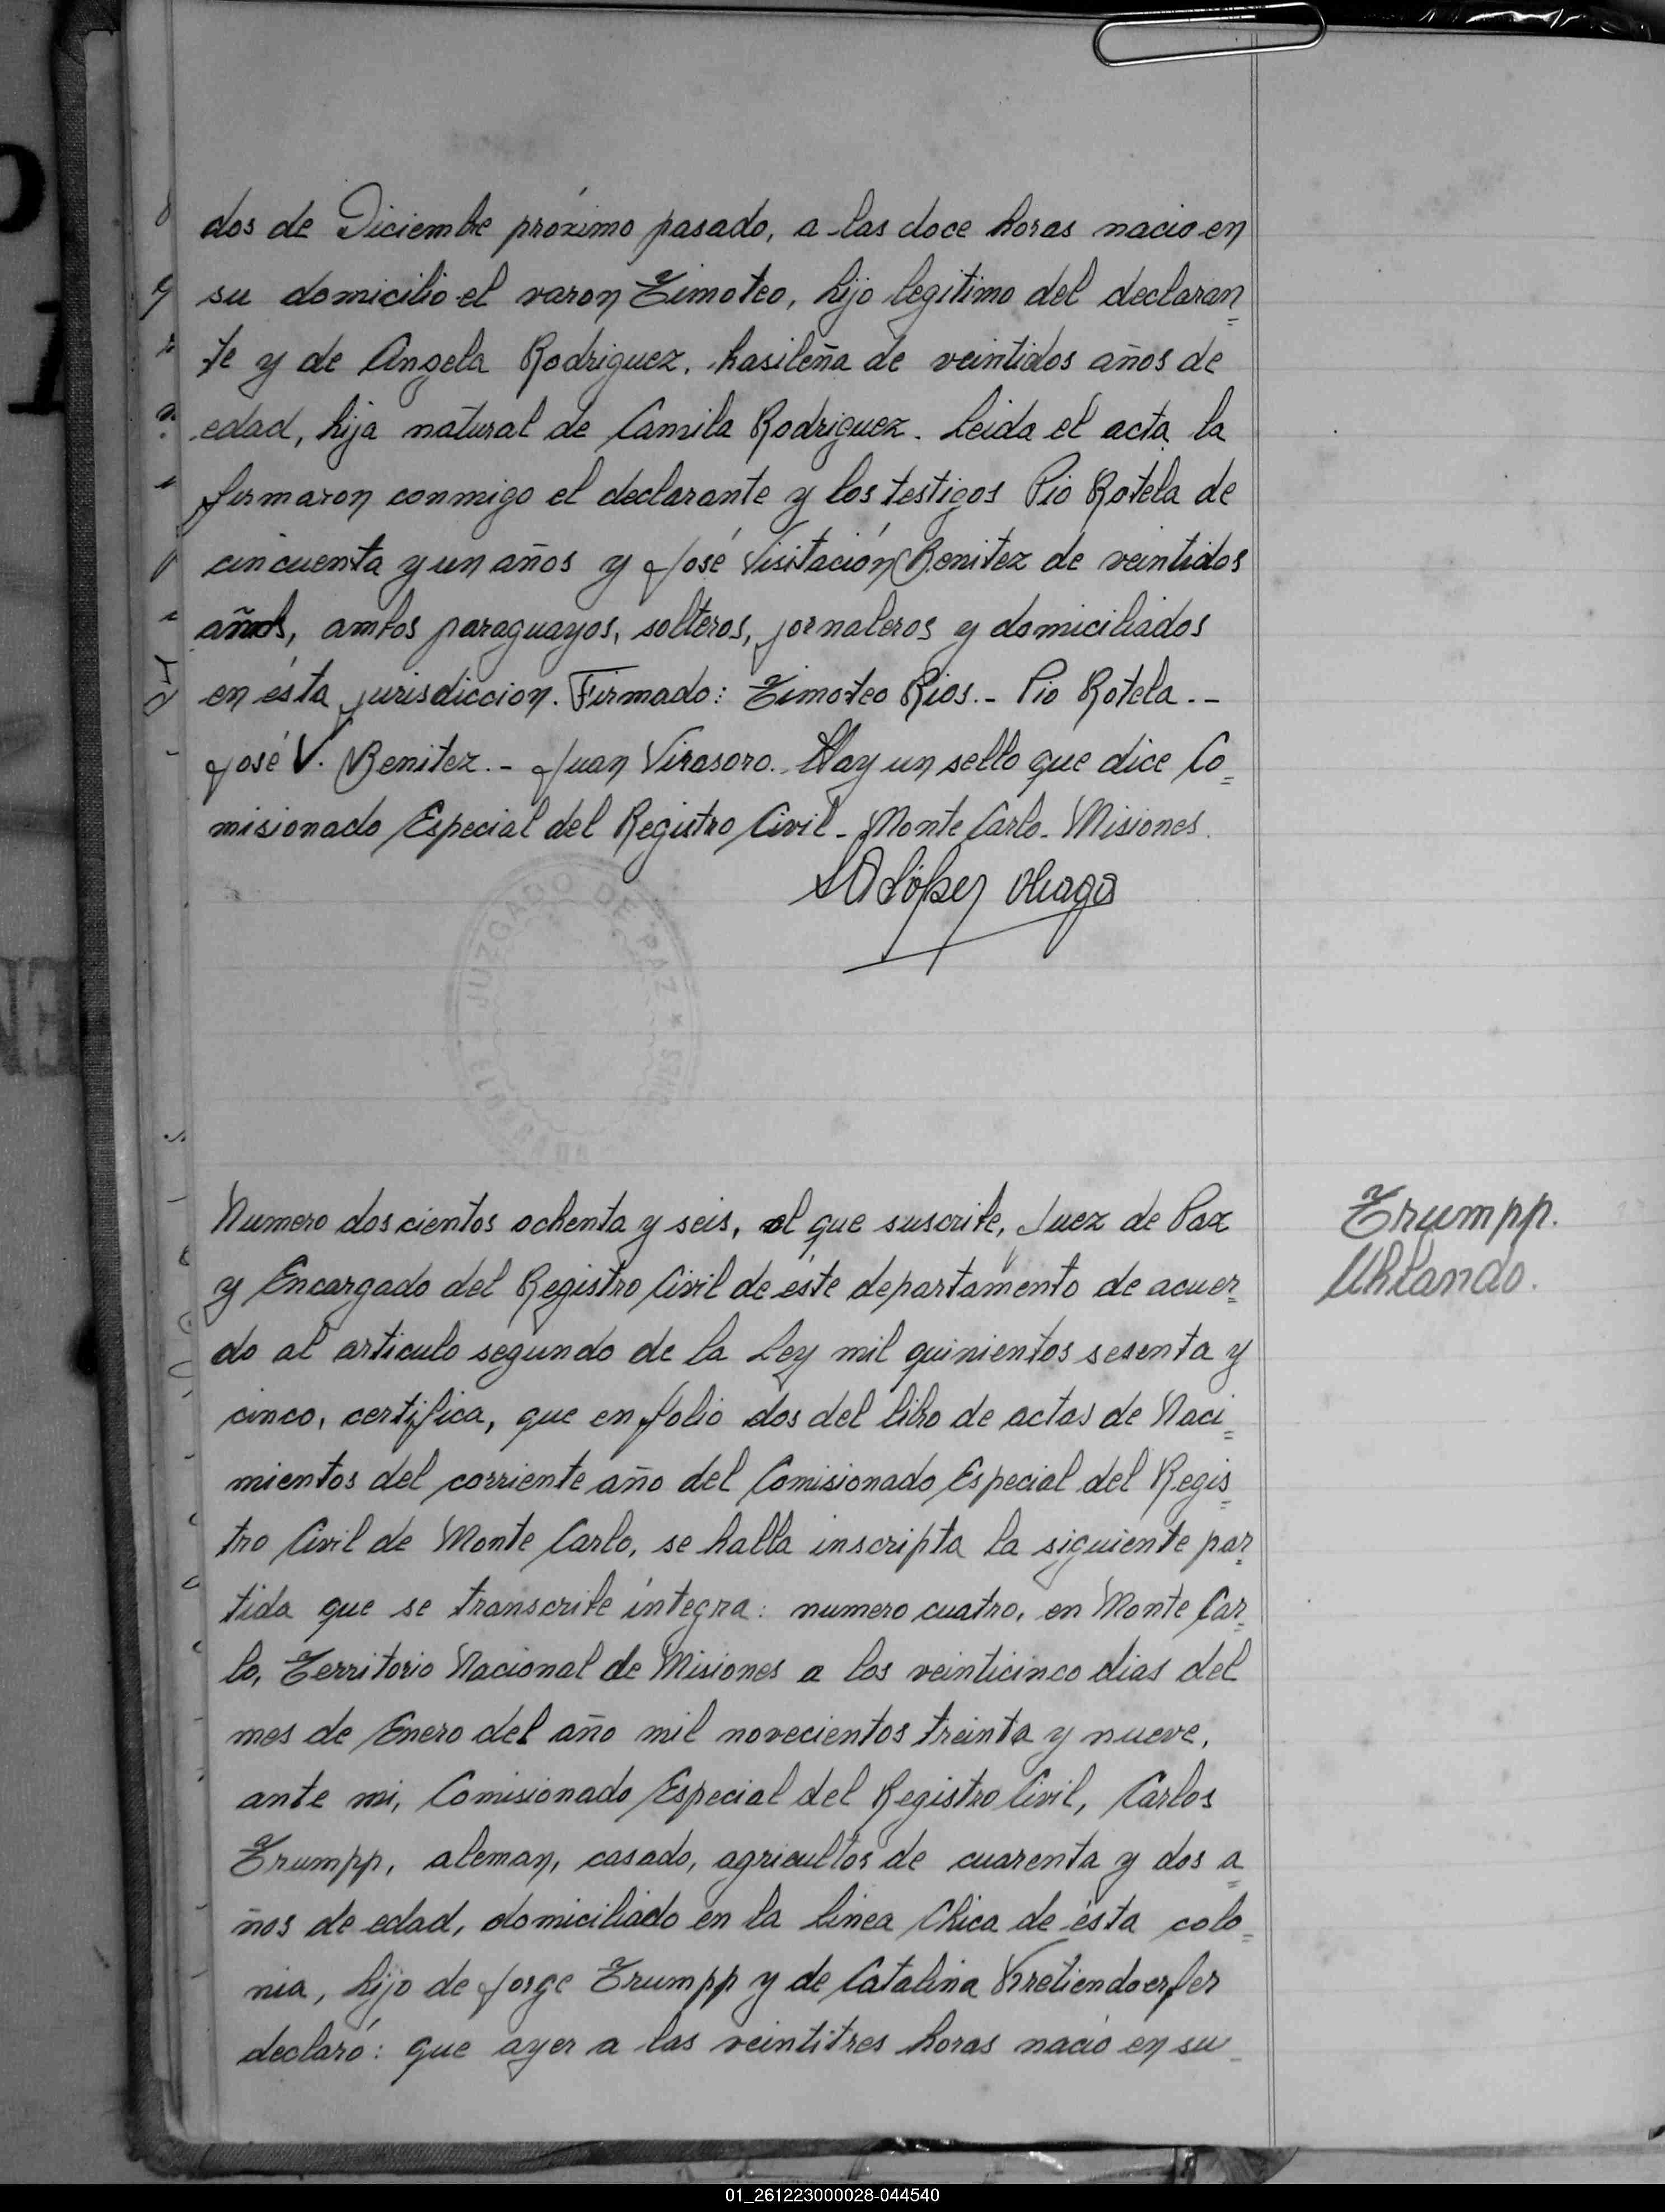 dos de Diciembre próximo pasado, a las doce horas nació en
su domicilio el varon Timoteo, hijo legitimo del declaran=
te y de Angela Rodriguez, brasileña de veintidos años de
edad, hija natural de Camila Rodriguez. Leida el acta la
firmaron conmigo el declarante y los testigos Pio Rotela de
cincuenta y un años y José Visitación Benitez de veintidos
años, ambos paraguayos, solteros, jornaleros y domiciliados
en ésta jurisdiccion. Firmado: Timoteo Rios.- Pio Rotela.-
José V. Benitez.- Juan Virasoro. Hay un sello que dice Co=
misionado Especial del Registro Civil - Monte Carlo - Misiones.
JUZGADO DE PAZ
Numero doscientos ochenta y seis, el que suscribe, Juez de Paz
y Encargado del Registro Civil de éste departamento de acuer=
do al articulo segundo de la Ley mil quinientos sesenta y
cinco, certifica, que en folio dos del libro de actas de Naci=
mientos del corriente año del Comisionado Especial del Regis=
tro Civil de Monte Carlo, se halla inscripta la siguiente par=
tida que se transcribe íntegra: numero cuatro, en Monte Car=
lo, Territorio Nacional de Misiones a los veinticinco dias del
mes de Enero del año mil novecientos treinta y nueve,
ante mi, Comisionado Especial del Registro Civil, Carlos
Trumpp, aleman, casado, agricultor de cuarenta y dos a=
ños de edad, domiciliado en la linea Chica de ésta colo=
nia, hijo de Jorge Trumpp y de Catalina Kretiendoerfer
declaró: que ayer a las veintitres horas nació en su
Trumpp.
Uhlando.
01_261223000028-044540